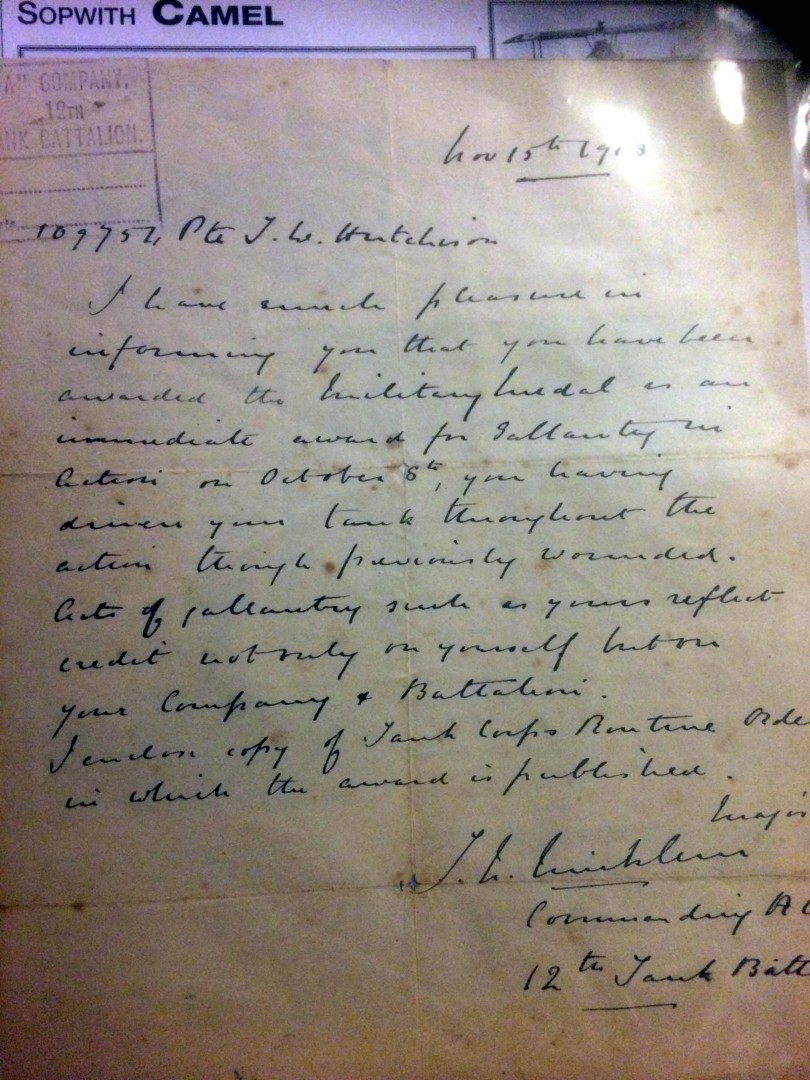 SOPWITH CAMEL
A" COMPANY,
12TH
NK BATTALION.
Nov 15th 1918
Pte J. W. Hutchison
I have much pleasure in
informing you that you have been
awarded the Military Medal as an
immediate award for Gallantry in
Action on October 8th, you having
driven your tank throughout the
action though previously wounded.
Acts of gallantry such as yours reflect
credit not only on yourself but on
your Company & Battalion.
I enclose copy of Tank Corps Routine Orde
in which the award is published.
Major
Commanding A C
12th Tank Batt